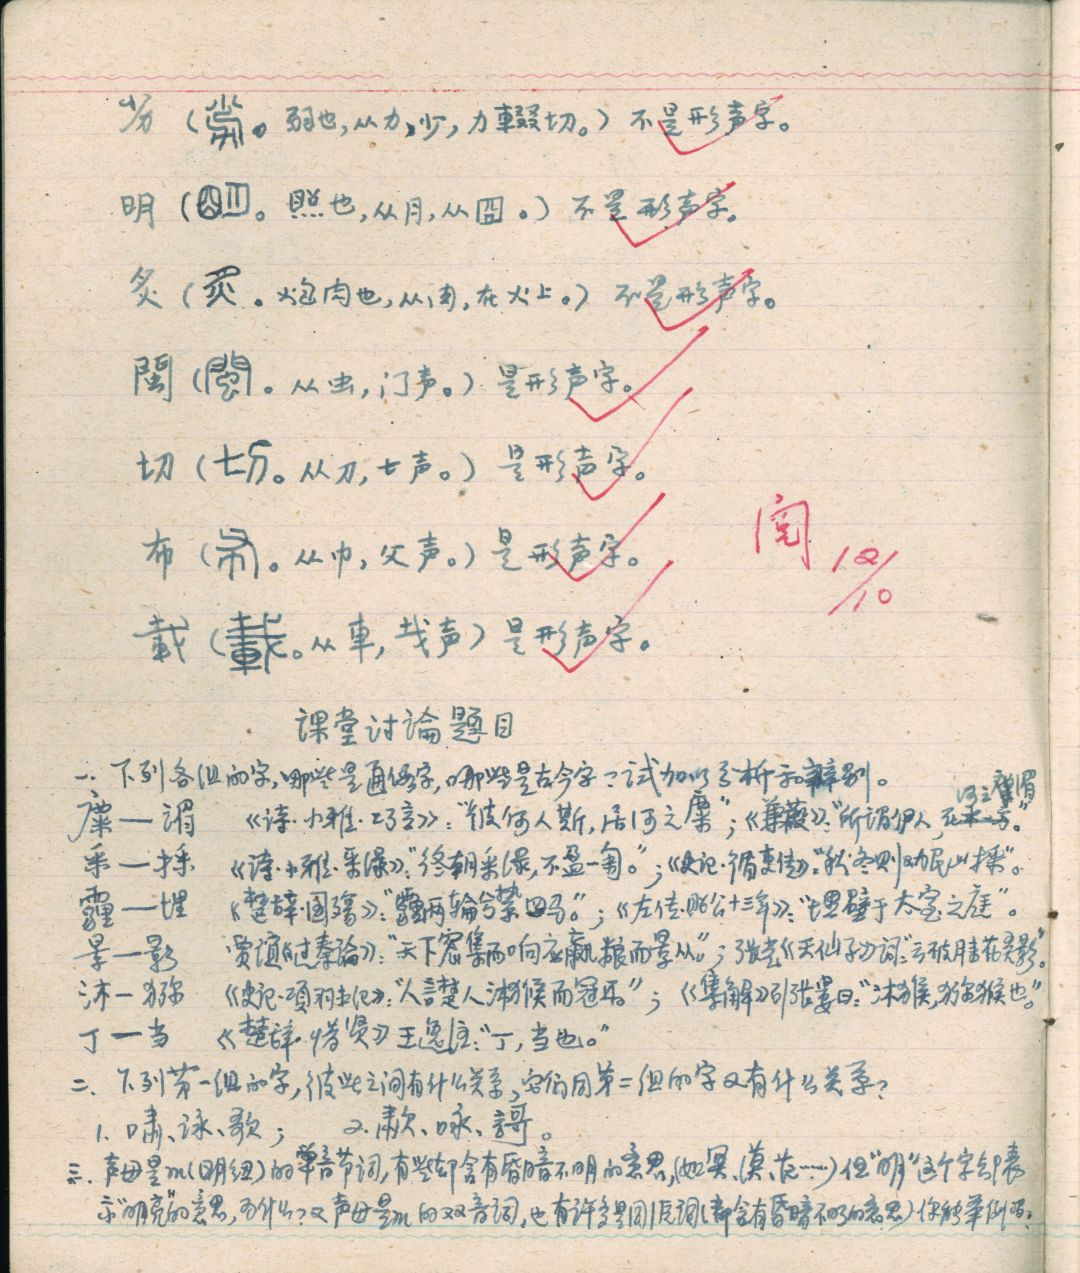 劣（。弱也，从力，少，力輟切。）不是形声字。
明（朙。照也，从月，从囧。）不是形声字。
炙（炙。炮肉也，从肉，在火上。）不是形声字。
閩（閩。从虫，门声。）是形声字。
切（切。从刀，七声。）是形声字。
布（布。从巾，父声。）是形声字。
阅 12/10
載（載。从車，𢦏声）是形声字。
课堂讨论题目
一、下列各组的字，哪些是通假字，哪些是古今字？试加以分析和辨别。
麋—湄 《诗·小雅·巧言》：“彼何人斯，居河之麋”；《蒹葭》：“所谓伊人，在水之湄”
采—採 《诗·小雅·采绿》：“终朝采绿，不盈一匊。”；《史记·循吏传》“秋冬则劝民山採”。
霾—埋 《楚辞·国殇》：“霾两轮兮絷四马。”；《左传·昭公十三年》：“埋璧于大室之庭”。
景—影 贾谊《过秦论》：“天下云集而响应，赢粮而景从”；张先《天仙子》词：“云破月来花弄影”。
沐—猕 《史记·项羽本记》：“人言楚人沐猴而冠耳”；《集解》引张晏曰：“沐猴，猕猴也。”
丁—当 《楚辞·惜贤》王逸注：“丁，当也。”
二、下列第一组的字，彼此之间有什么关系，它们同第二组的字又有什么关系？
1. 啸、詠、歌； 2. 歗、咏、謌。
三、声母是m（明纽）的单音节词，有些却含有昏暗不明的意思，（如冥、漠、茫……）但“明”这个字却表
示“明亮”的意思，为什么？又声母是m的双音词，也有许多是同源词（都含有昏暗不明的意思）你能举例否？